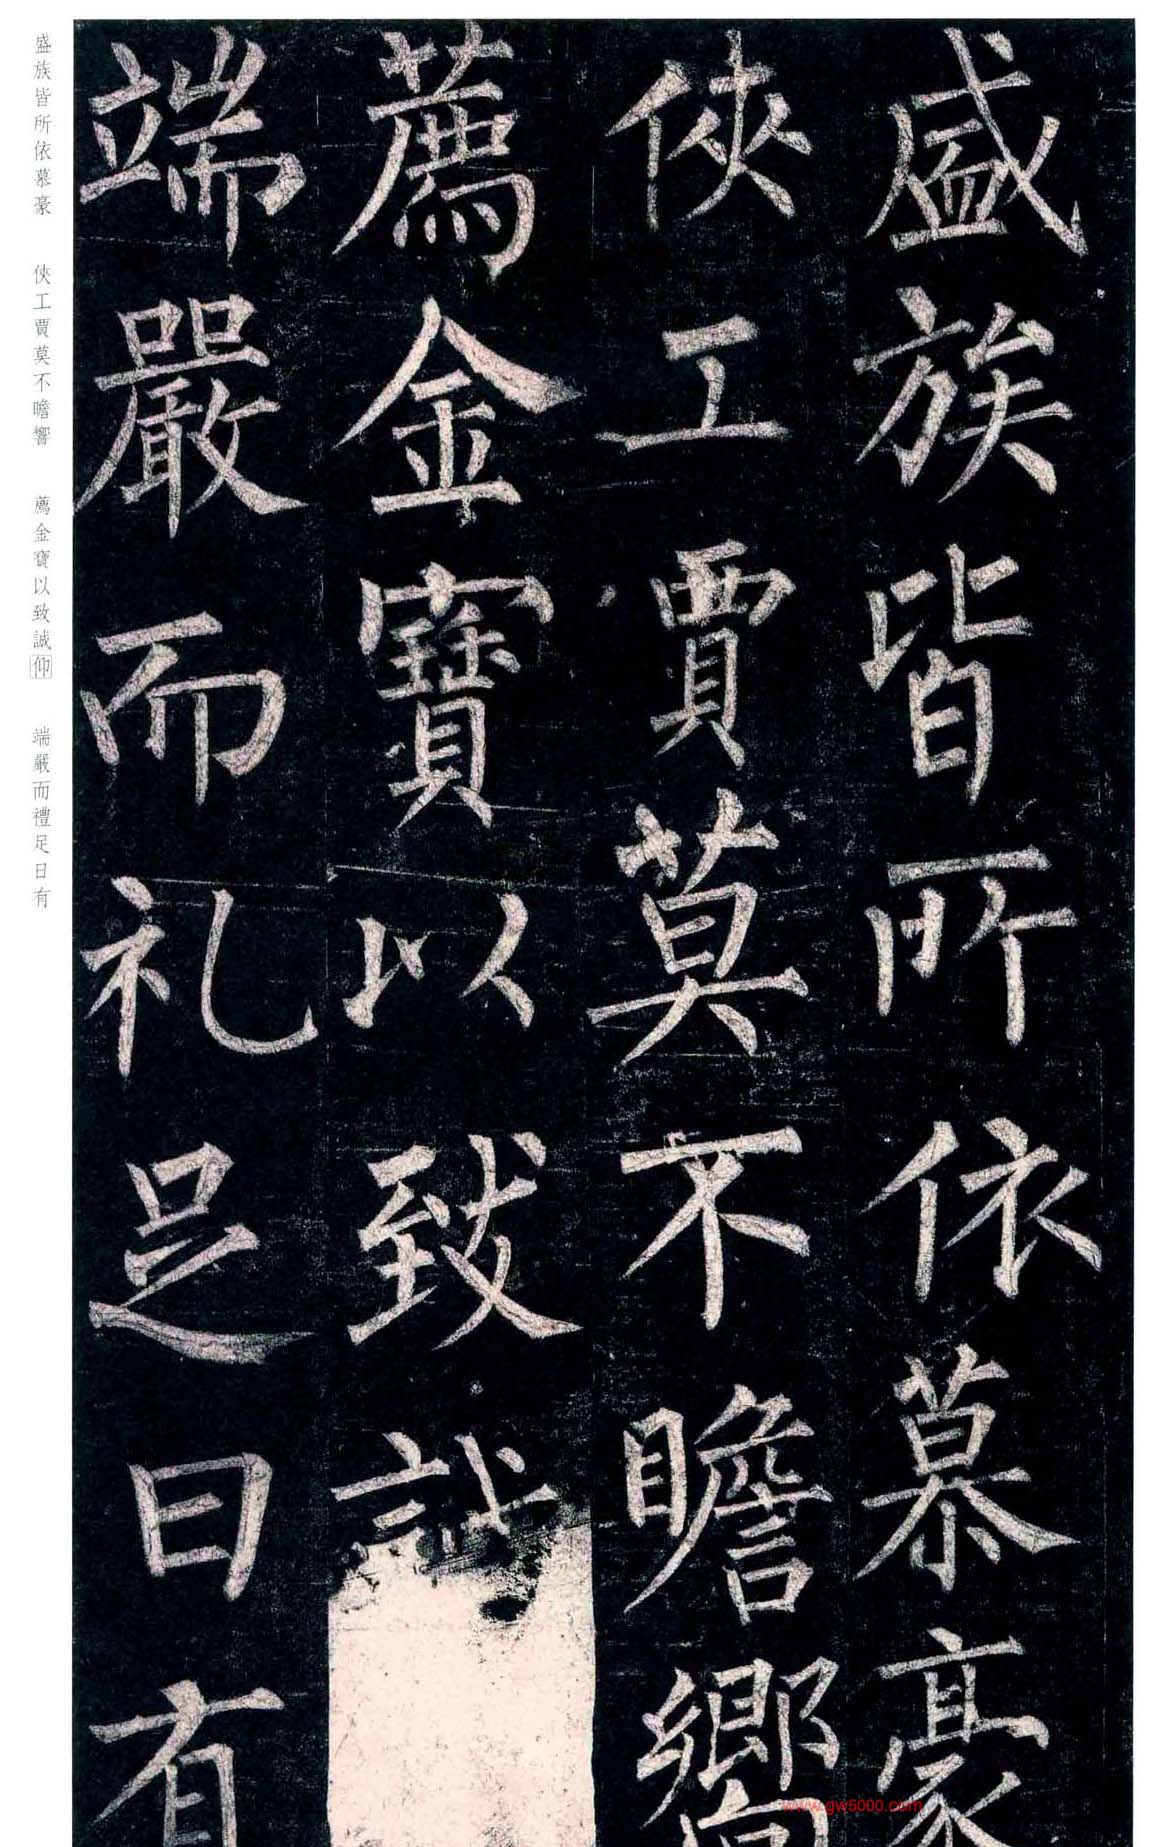 盛族皆所依慕豪
俠工賈莫不瞻嚮
薦金寶以致誠
端嚴而礼足日有
盛族皆所依慕豪 俠工賈莫不瞻響 薦金寶以致誠仰 端嚴而禮足日有
www.gw5000.com